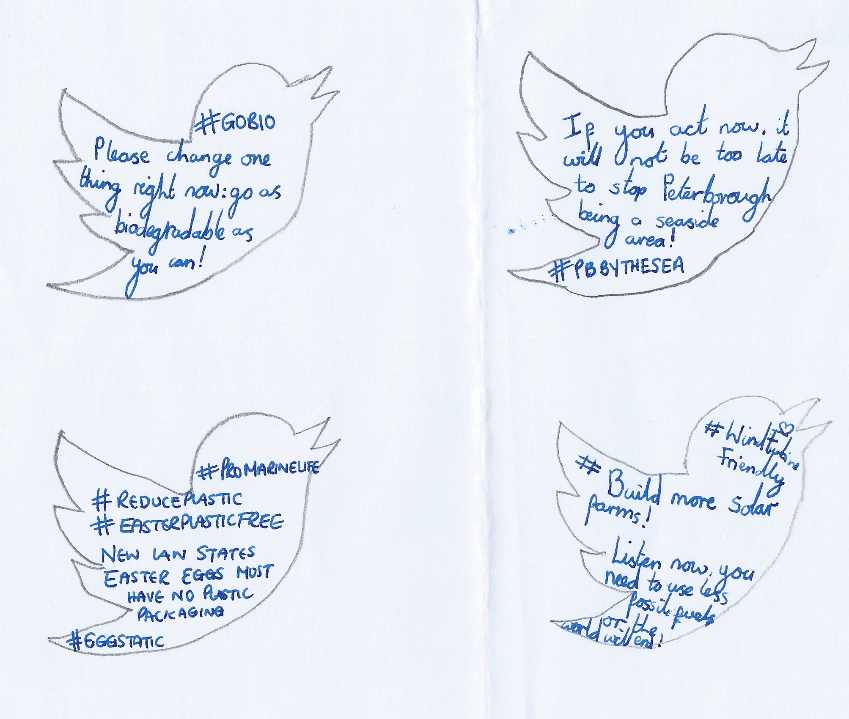 #GOBIO
Please change one
thing right now: go as
biodegradable as
you can!
If you act now, it
will not be too late
to stop Peterborough
being a seaside
area!
#PBBYTHESEA
#PROMARINELIFE
#REDUCEPLASTIC
#EASTERPLASTICFREE
NEW LAW STATES
EASTER EGGS MUST
HAVE NO PLASTIC
PACKAGING
#EGGSTATIC
#WindTurbine
Friendly
# Build more Solar
farms!
Listen now, you
need to use less
fossil fuels
or the
world will end!